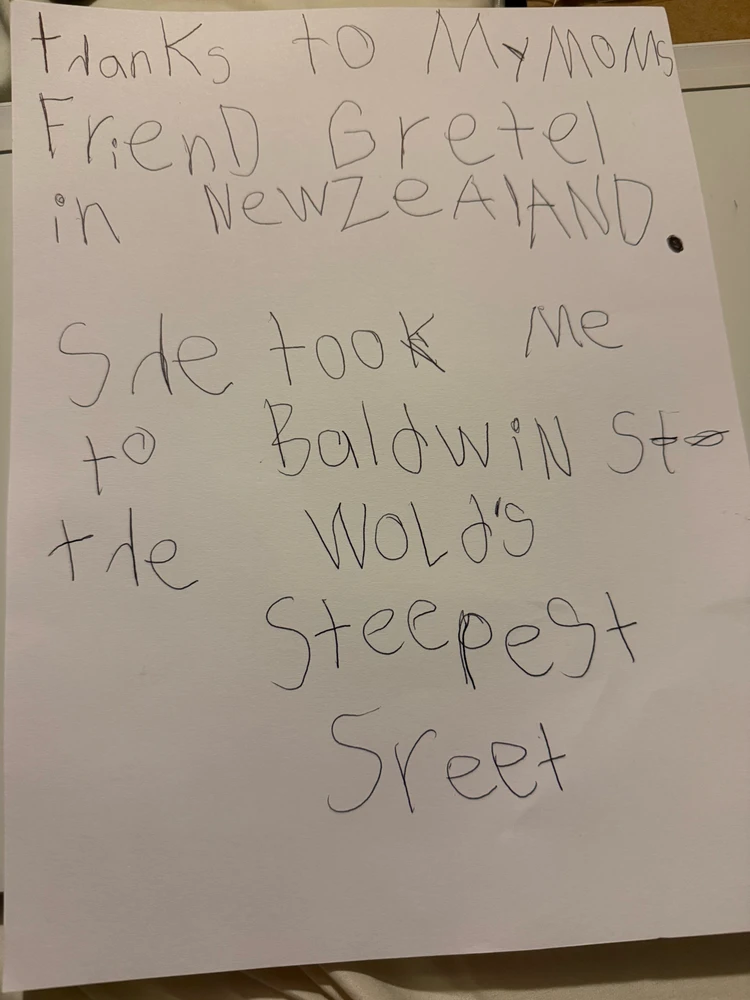 thanks to MyMOMs
FrienD Gretel
in NewZeAlAND.
She took Me
to Baldwin St
the WOLd's
Steepest
Sreet